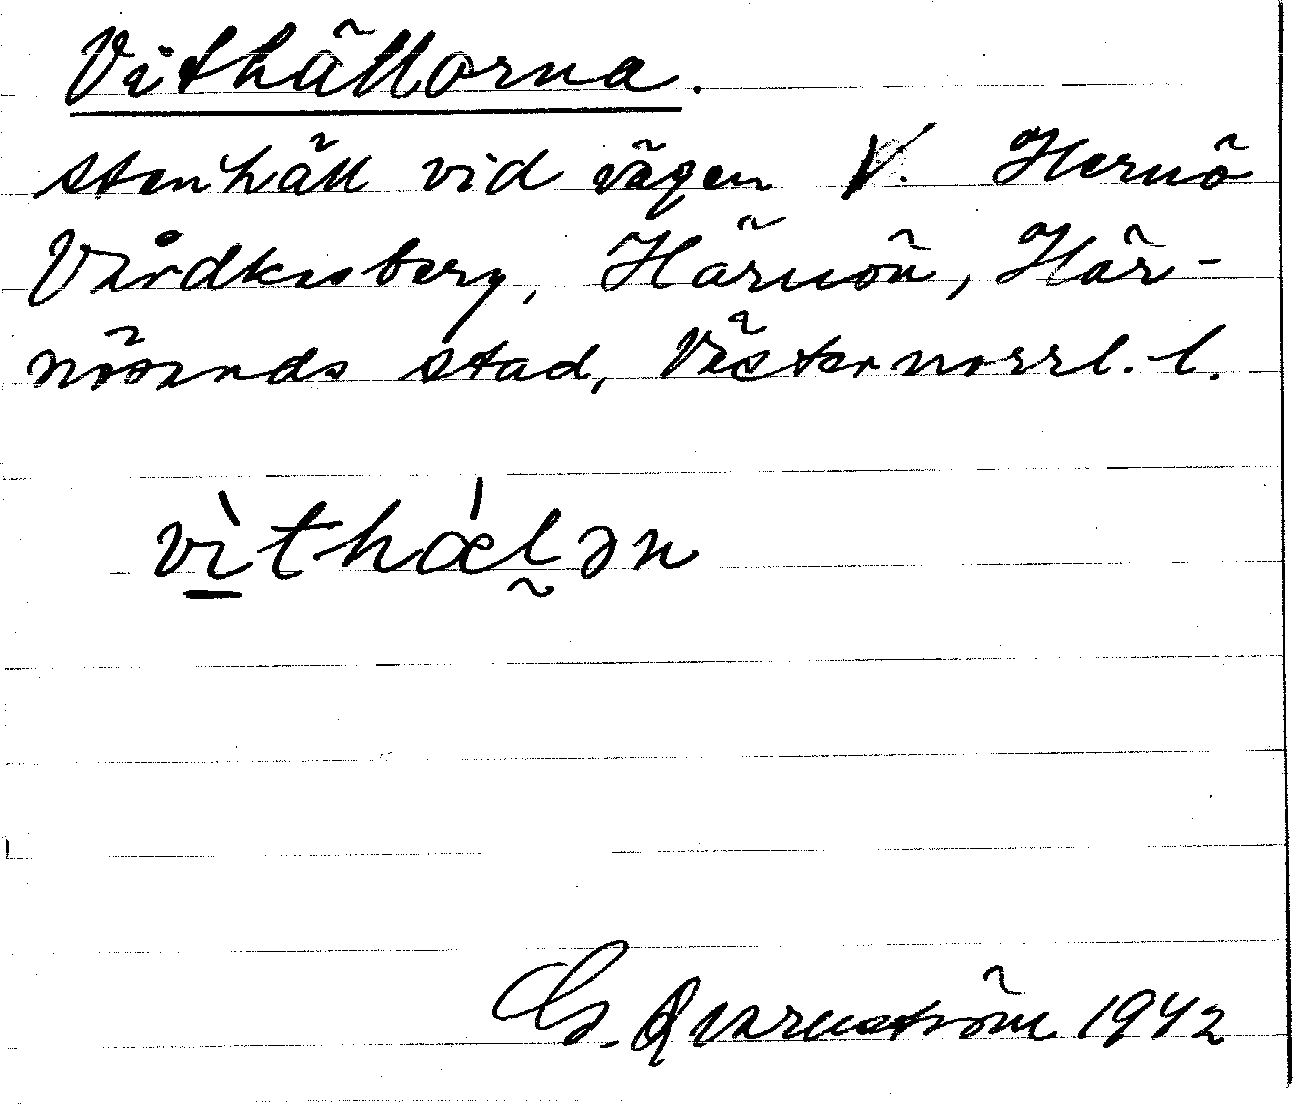 Vithällorna.
stenhäll vid vägen V. Hernö
Vårdkasberg, Härnön, Här-
nösands stad, Västernorrl. l.
vìthǽl̰ən
G. Qvarnström 1942